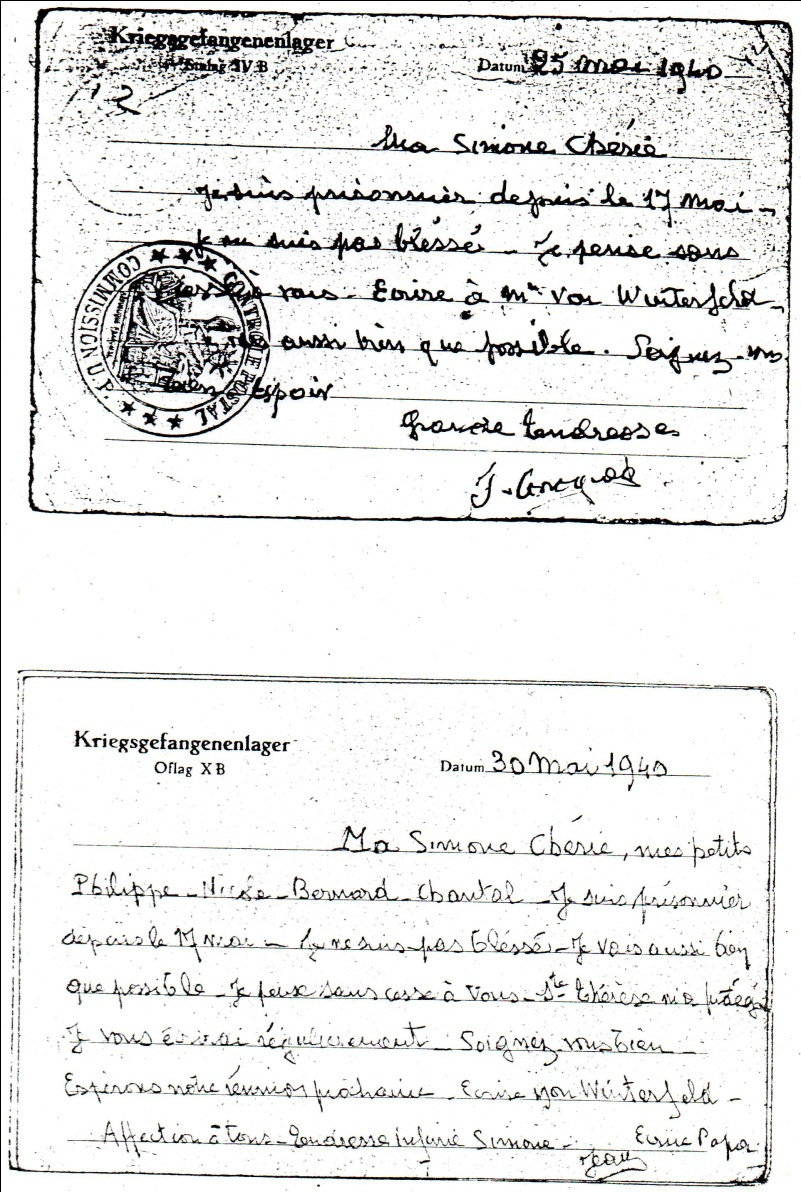 Kriegsgefangenenlager
Stalag IV B
Datum 25 Mai 1940
12
Ma Simone Chérie
Je suis prisonnier depuis le 17 Mai -
Je ne suis pas bléssé - Je pense sans
cesse à vous - Ecrire à Mr Von Winterfeld -
aussi bien que possible. Soignez-vous
Espoir
COMMISSION D
CONTROLE POSTAL
Grande tendresse
J.
Kriegsgefangenenlager
Oflag XB
Datum 30 Mai 1940
Ma Simone Chérie, mes petits
Philippe - Nicole - Bernard - Chantal - Je suis prisonnier
depuis le 17 Mai - Je ne suis pas bléssé - Je vais aussi bien
que possible - Je pense sans cesse à Vous - Ste Thérèse m'a protégé
Je vous écrirai régulierement - Soignez vous bien -
Espérons notre réunion prochaine - Ecrire von Winterfeld -
Affection à tous - Tendresse infinie Simone - Papa
Jean